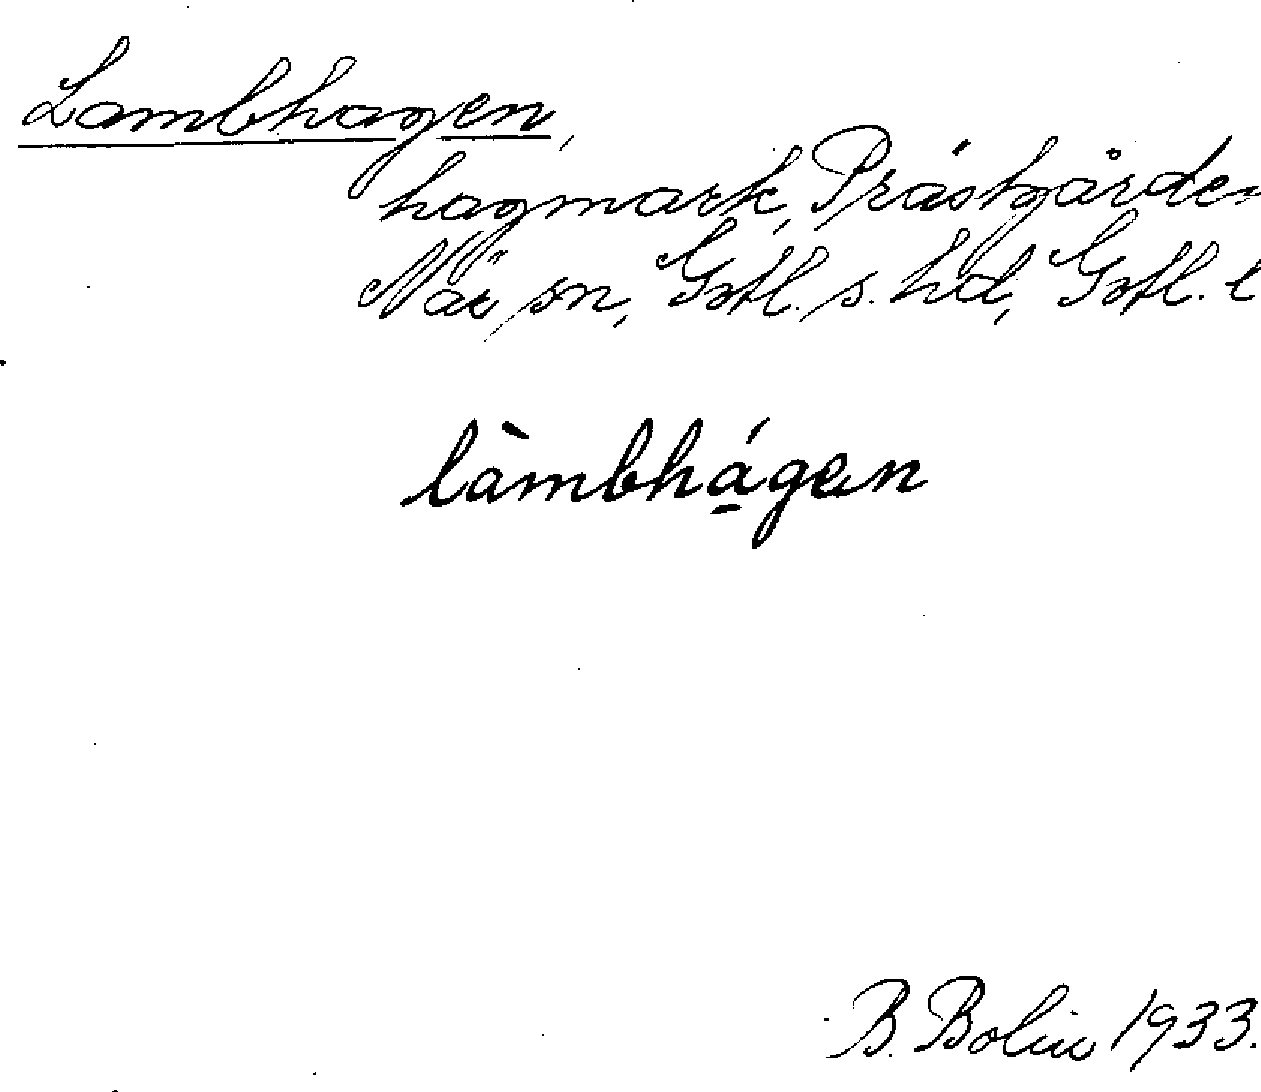 Lambhagen,
hagmark, Prästgården
När sn, Gotl. s. hd, Gotl. l
làmbhá̱gæn
B. Bolin 1933.